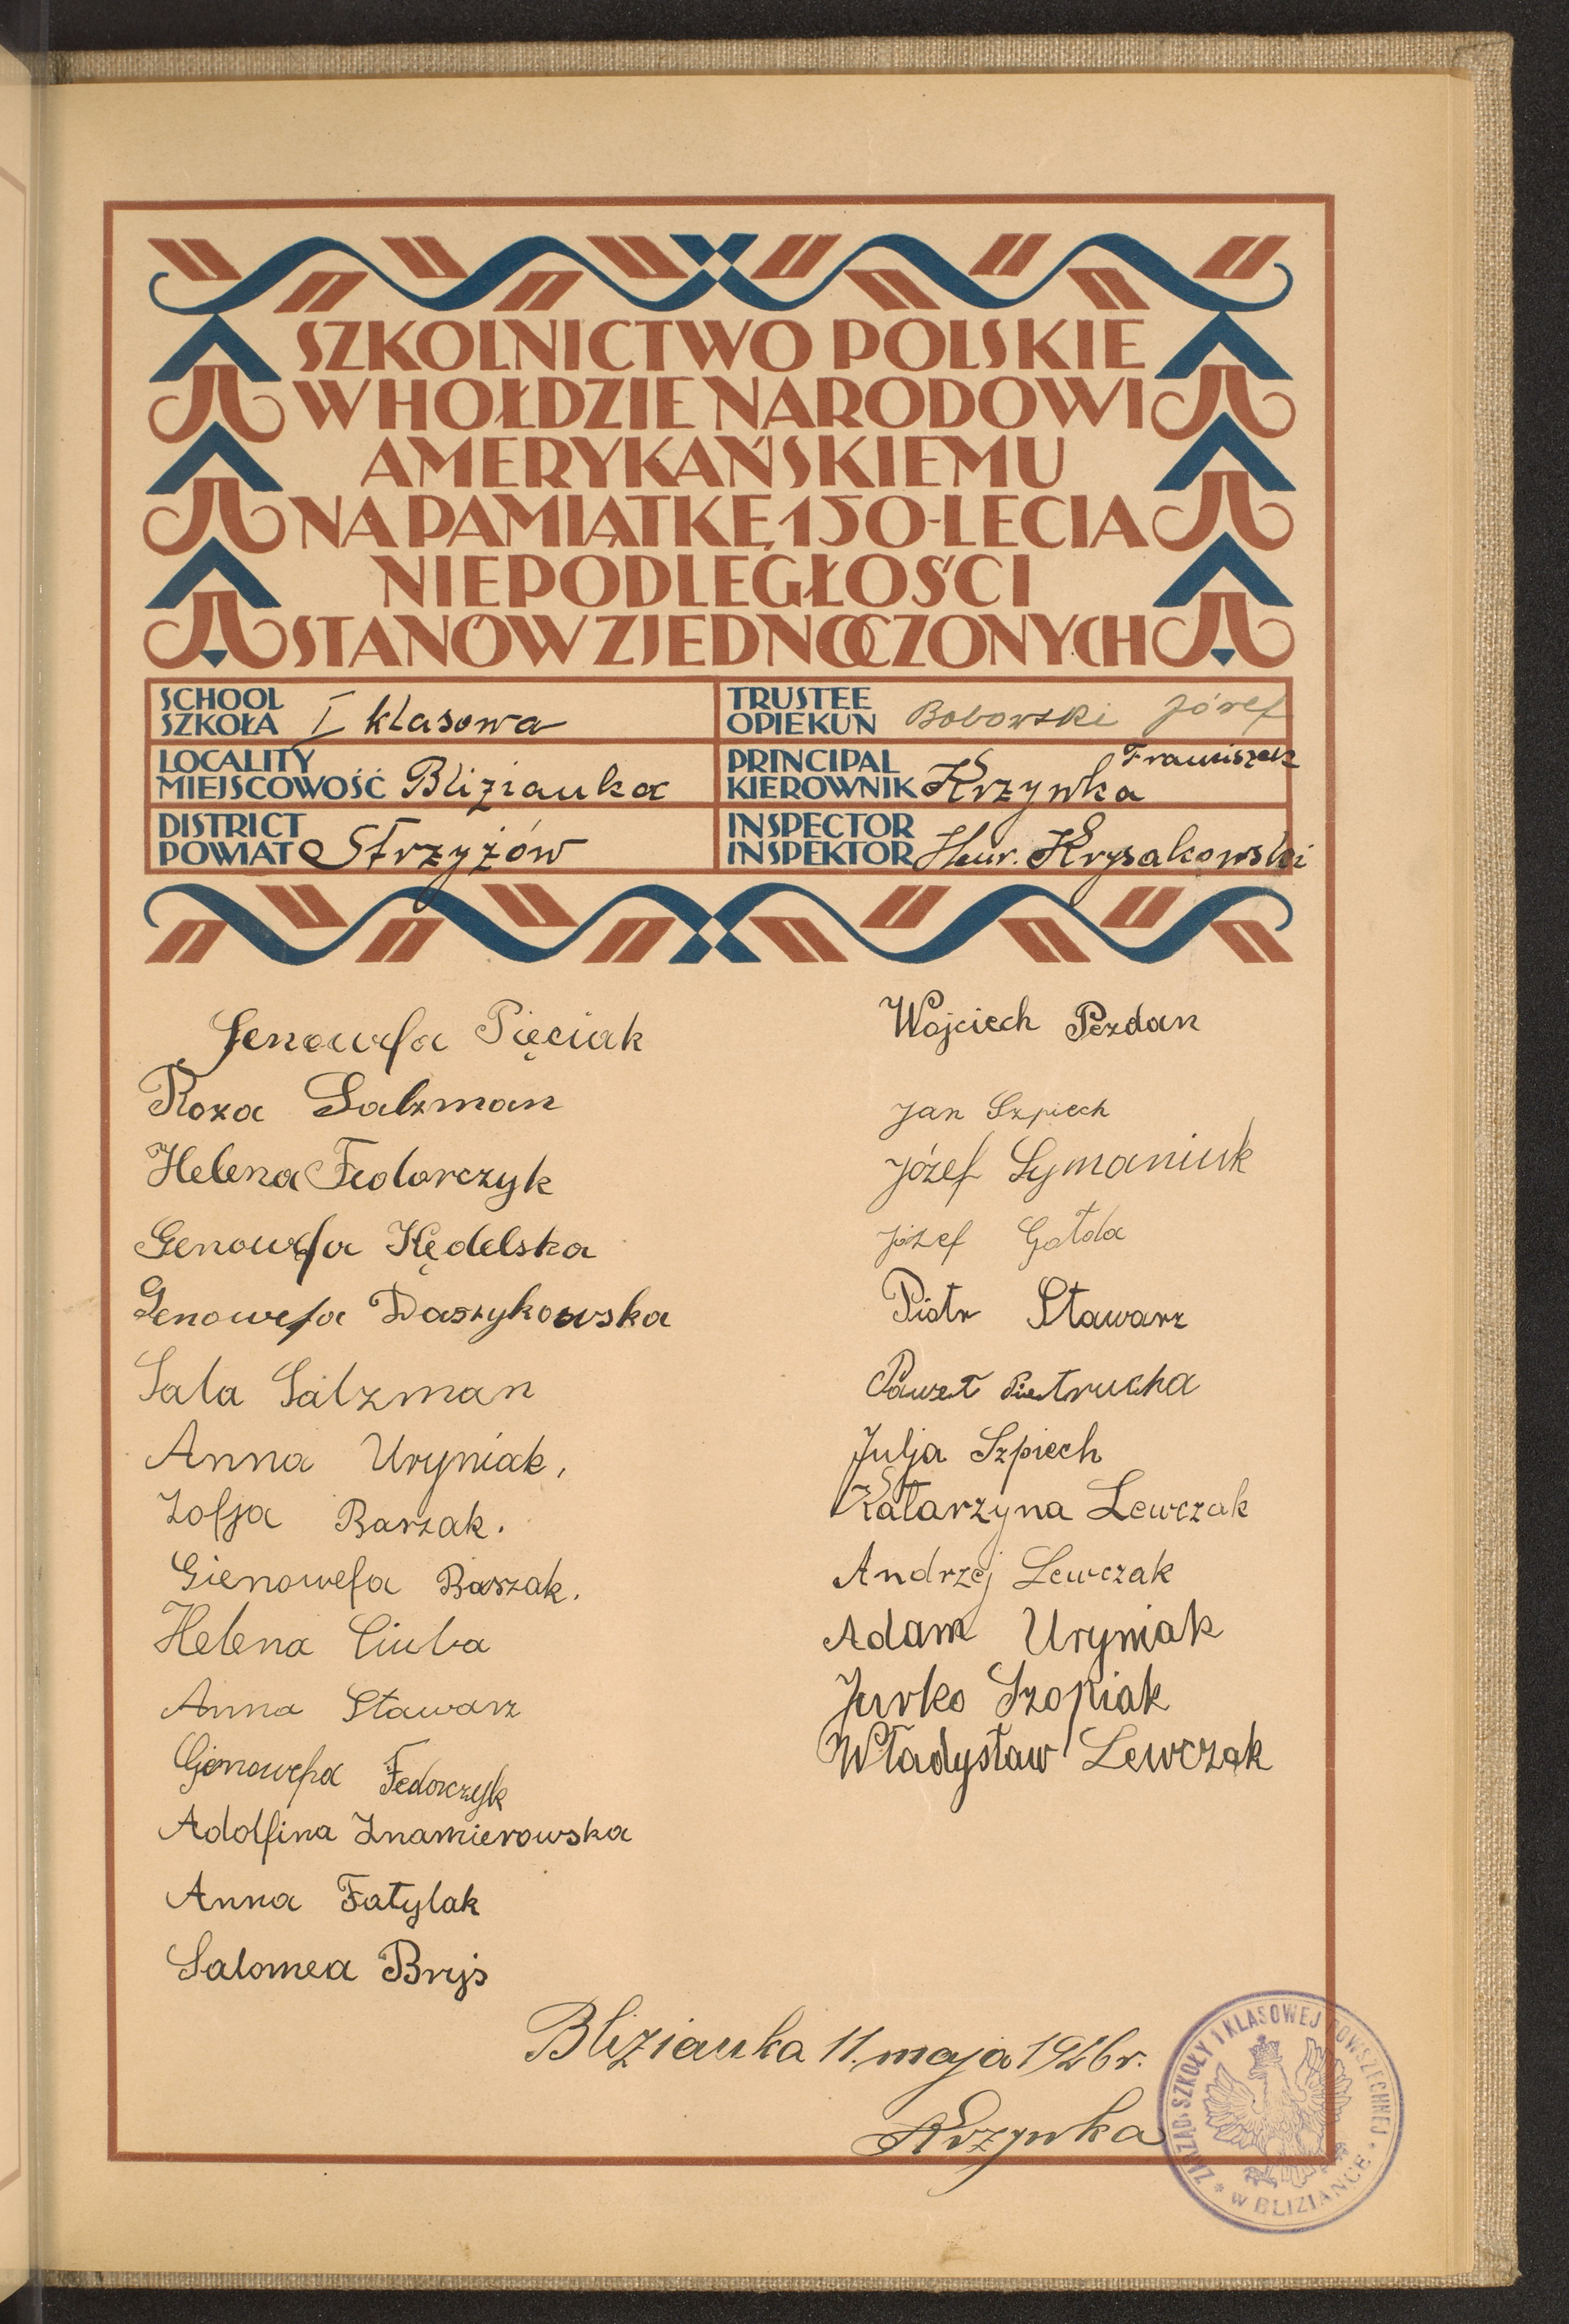 SZKOLNICTWO POLSKIE
W HOŁDZIE NARODOWI
AMERYKAŃSKIEMU
NA PAMIĄTKĘ 150-LECIA
NIEPODLEGŁOŚCI
STANÓW ZJEDNOCZONYCH
SCHOOL
SZKOŁA I klasowa
TRUSTEE
OPIEKUN Bobowski Józef
LOCALITY
MIEJSCOWOŚĆ Blizianka
PRINCIPAL Franciszek
KIEROWNIK Krzywka
DISTRICT
POWIAT Strzyżów
INSPECTOR
INSPEKTOR Henr. Krysakowski
Genowefa Pięciak
Roza Salzman
Helena Fedorczyk
Genowefa Kędelska
Genowefa Daszykowska
Sala Salzman
Anna Uryniak,
Zofja Barzak.
Gienowefa Baszak.
Helena Ciuba
Anna Stawarz
Gienowefa Fedorczyk
Adolfina Znamierowska
Anna Fatylak
Salomea Brys
Wojciech Pezdan
Jan Szpiech
Józef Symaniuk
Józef Gołda
Piotr Stawarz
Paweł Pietrucha
Julja Szpiech
Katarzyna Lewczak
Andrzej Lewczak
Adam Uryniak
Jurko Szopiak
Władysław Lewczak
Blizianka 11. maja 1926 r.
Krzywka
ZARZĄD SZKOŁY 1 KLASOWEJ POWSZECHNEJ
* W BLIZIANCE *